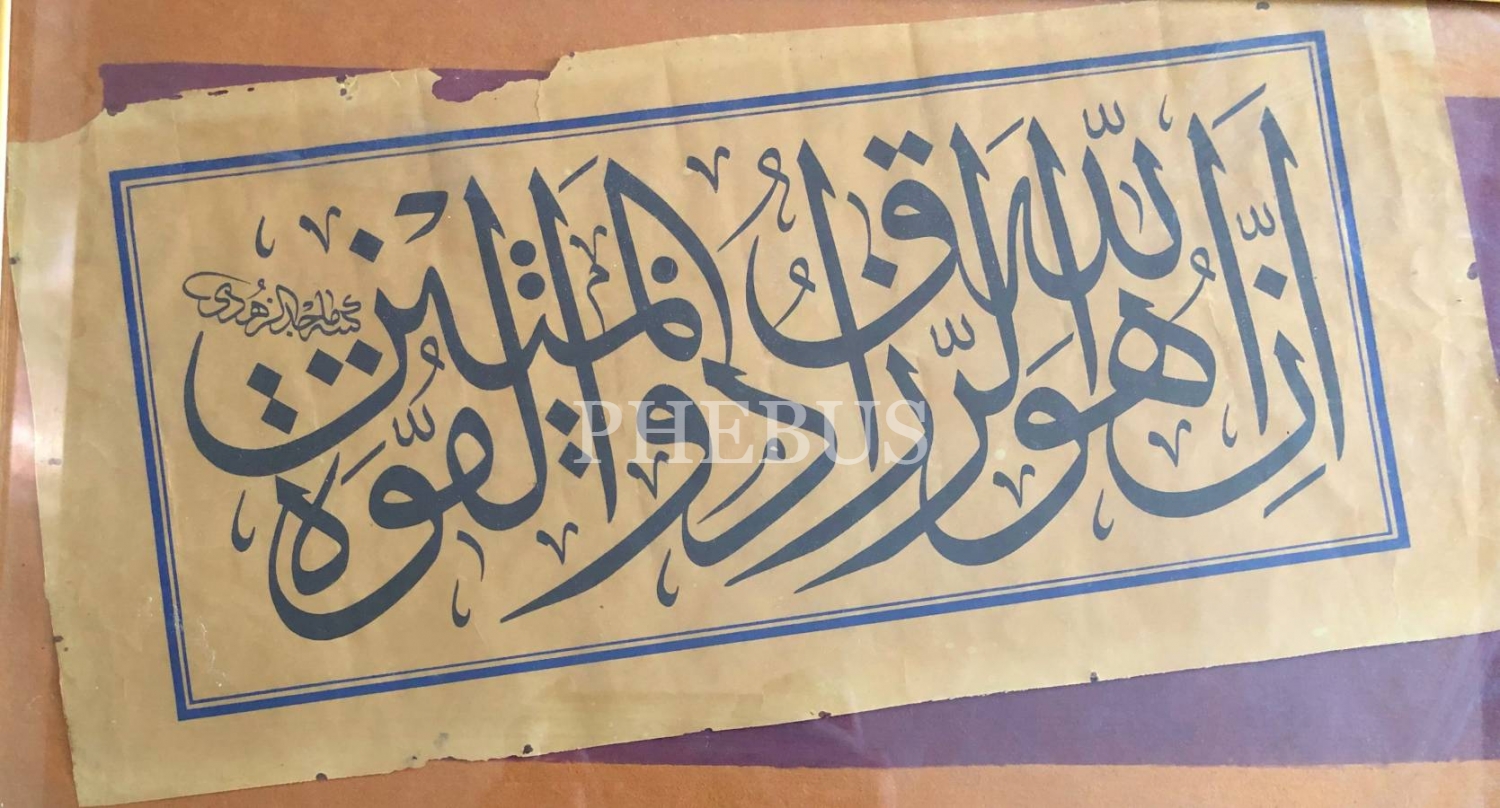 إِنَّ اللّٰهَ هُوَ الرَّزَّاقُ ذُو الْقُوَّةِ الْمَتِينُ
كتبه ماجد الزهدي
PHEBUS